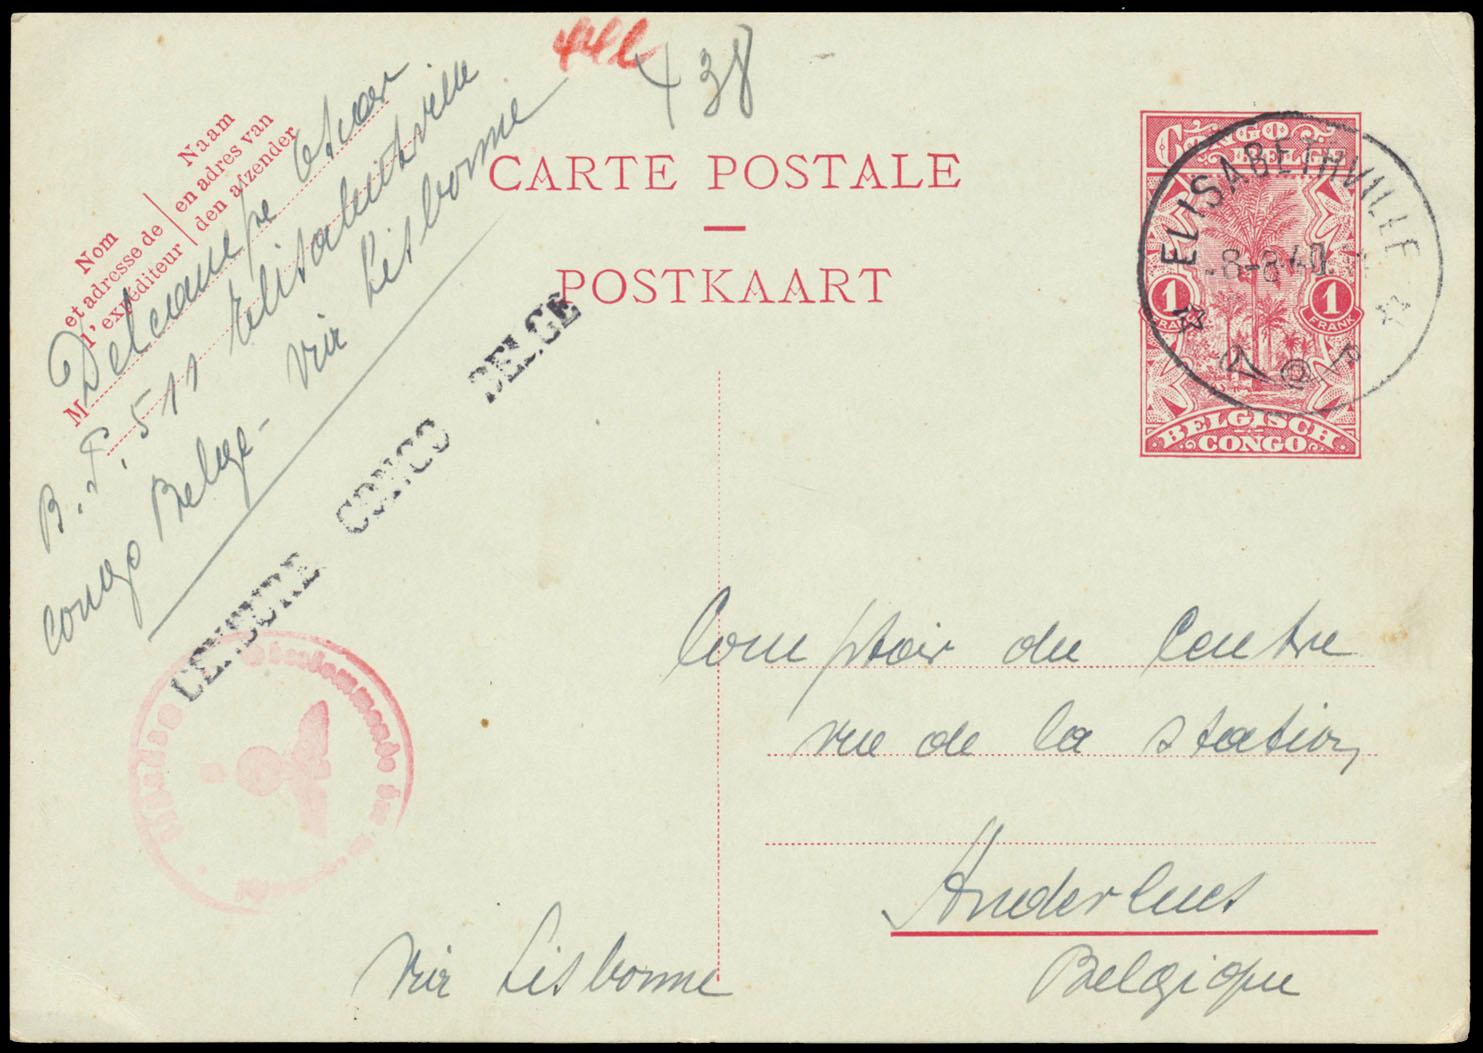 438
Nom
et adresse de
l'expéditeur
Naam
en adres van
den afzender
M Delcampe Oscar
B.P. 511 Elisabethville
Congo Belge -
via Lisbonne
CARTE POSTALE
POSTKAART
CONGO
BELGE
1
FRANK
1
FRANK
BELGISCH
CONGO
ELISABETHVILLE
8-8-40
CENSURE CONGO BELGE
Oberkommando der
Comptoir du Centre
rue de la station
Anderlues
Belgique
via Lisbonne